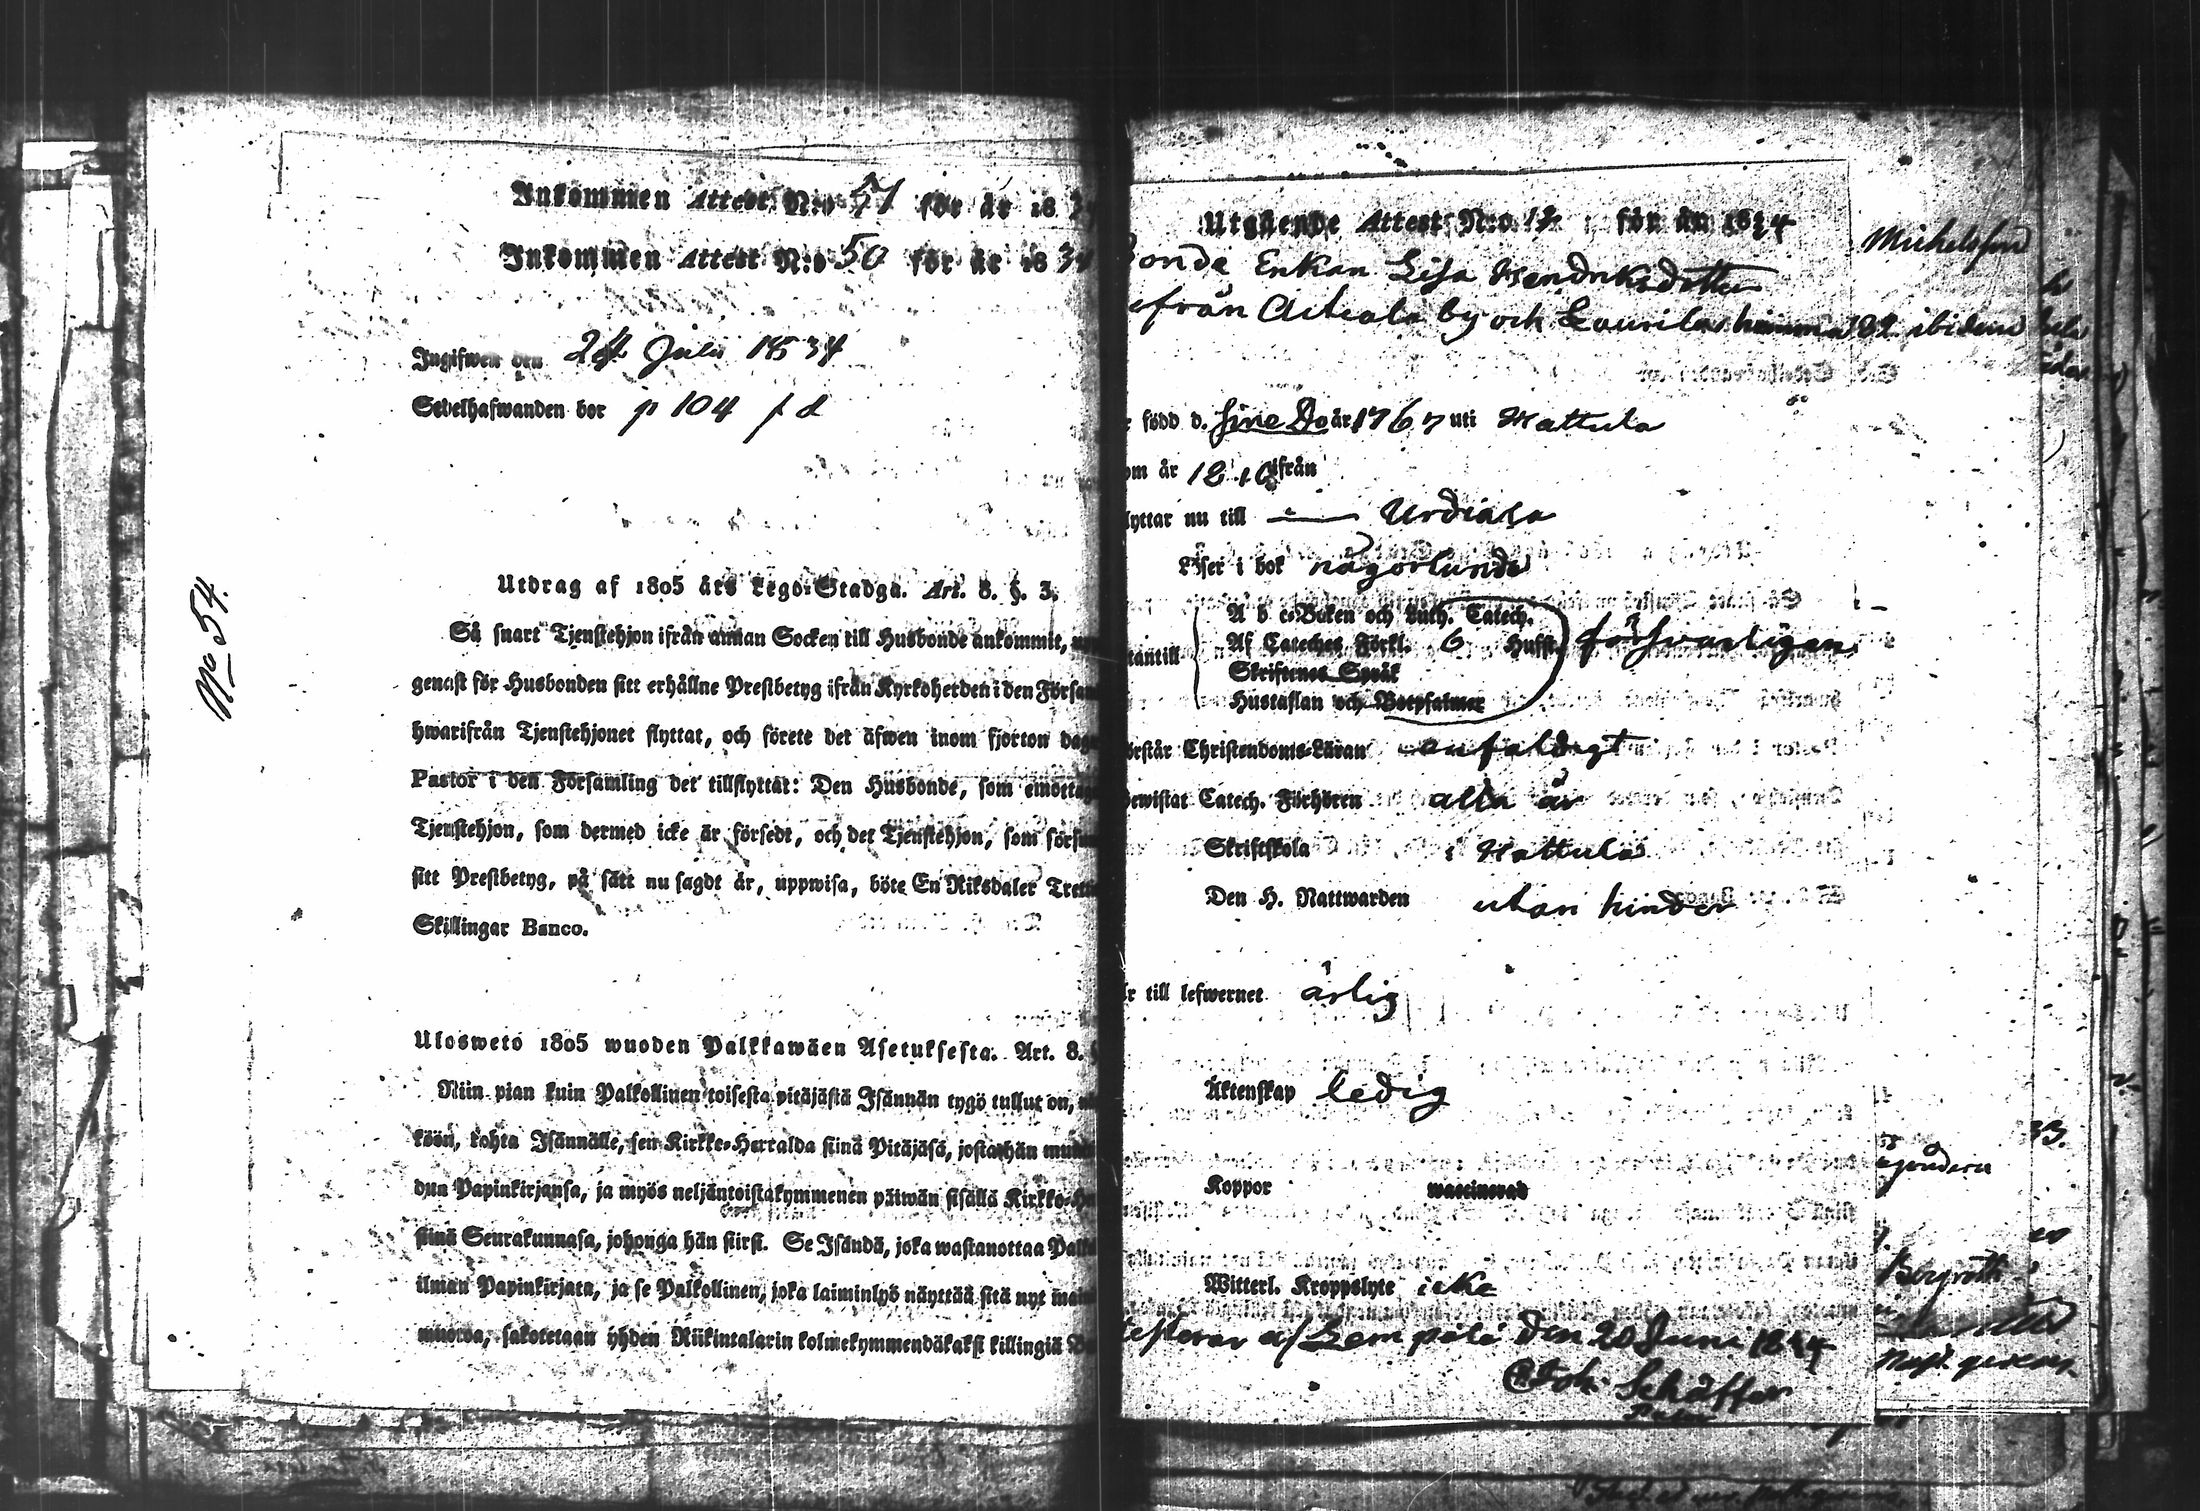 No 54.
Inkommen Attest N:o 51 för år 183
Inkommen Attest N:o 50 för år 1834
Ingifwen den 24 Julii 1834
Sedelhafwanden bor p 104 f d
Utdrag af 1805 års Lego-Stadga. Art. 8. §. 3.
Så snart Tjenstehjon ifrån annan Socken till Husbonde ankommit,
genast för Husbonden sitt erhållne Prestbetyg ifrån Kyrkoherden i den Försam
hwarifrån Tjenstehjonet flyttat, och förete det äfwen inom fjorton dag
Pastor i den Församling det tillflyttat: Den Husbonde, som emottag
Tjenstehjon, som dermed icke är försedt, och det Tjenstehjon, som försum
sitt Prestbetyg, på sätt nu sagdt är, uppwisa, böte En Riksdaler Tretti
Skillingar Banco.
Uloswetö 1805 wuoden Palkkawäen Asetuksesta. Art. 8.
Niin pian kuin Palkollinen toisesta pitäjästä Isännän tygö tullut on,
köön, kohta Isännälle, sen Kirkko-Herralda siinä Pitäjäsä, josta hän muut
dun Papinkirjansa, ja myös neljäntoistakymmenen päiwän sisällä Kirkko-He
siinä Seurakunnasa, johonga hän siirsi. Se Isändä, joka wastanottaa Palko
ilman Papinkirjata, ja se Palkollinen, joka laiminlyö näyttää sitä nyt main
muotoa, sakotetaan yhden Riikintalarin kolmekymmendäkaksi killingiä B
Utgående Attest N:o 13 för år 1834
onde Enkan Lisa Hendriksdotter
från by och Laurilas 182 ibidem
född d. sine Do år 1767 uti Hattula
om år 1810 ifrån
lyttar nu till Urdiala
Läser i bok någorlunda
A b c-Boken och Luth. Catech.
tantill Af Cateches Förkl. 6 Hufst. försvarligen
Skriftenes Språk
Hustaflan och Botpsalmer
örstår Christendoms-Läran enfaldigt
bewistat Catech. Förhören alla år
Skriftskola i Hattula
Den H. Nattwarden utan hinder
är till lefwernet ärlig
Äktenskap ledig
Koppor waccinerad
Witterl. Kroppslyte icke
testerar af Lempälä den 20 Juni 1834
Joh. Schäffer
Michelsson
33.
Bergroth